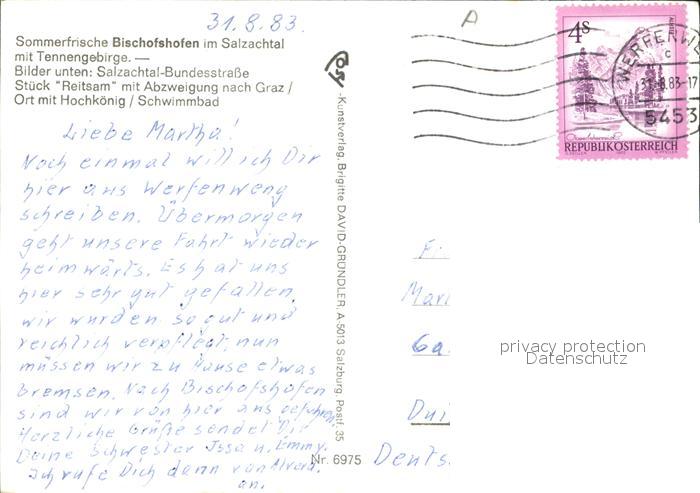 31.8.83.
Sommerfrische Bischofshofen im Salzachtal
mit Tennengebirge. —
Bilder unten: Salzachtal-Bundesstraße
Stück "Reitsam" mit Abzweigung nach Graz /
Ort mit Hochkönig / Schwimmbad
Liebe Martha!
Noch einmal will ich Dir
hier aus Werfenweng
schreiben. Übermorgen
geht unsere Fahrt wieder
heimwärts. Es hat uns
hier sehr gut gefallen,
wir wurden so gut und
reichlich verpflegt, nun
müssen wir zu Hause etwas
bremsen. Nach Bischofshofen
sind wir von hier aus gefahren.
Herzliche Grüße sendet Dir
Deine Schwester Issa u. Emmy.
Ich rufe Dich dann von
an.
-Kunstverlag, Brigitte DAVID-GRÜNDLER, A-5013 Salzburg, Postf. 35
Nr. 6975
A
4S
REPUBLIK ÖSTERREICH
WERFENWE
c
31.8.83-17
5453
F
Mar
Ga
Dui
Deuts
privacy protection
Datenschutz